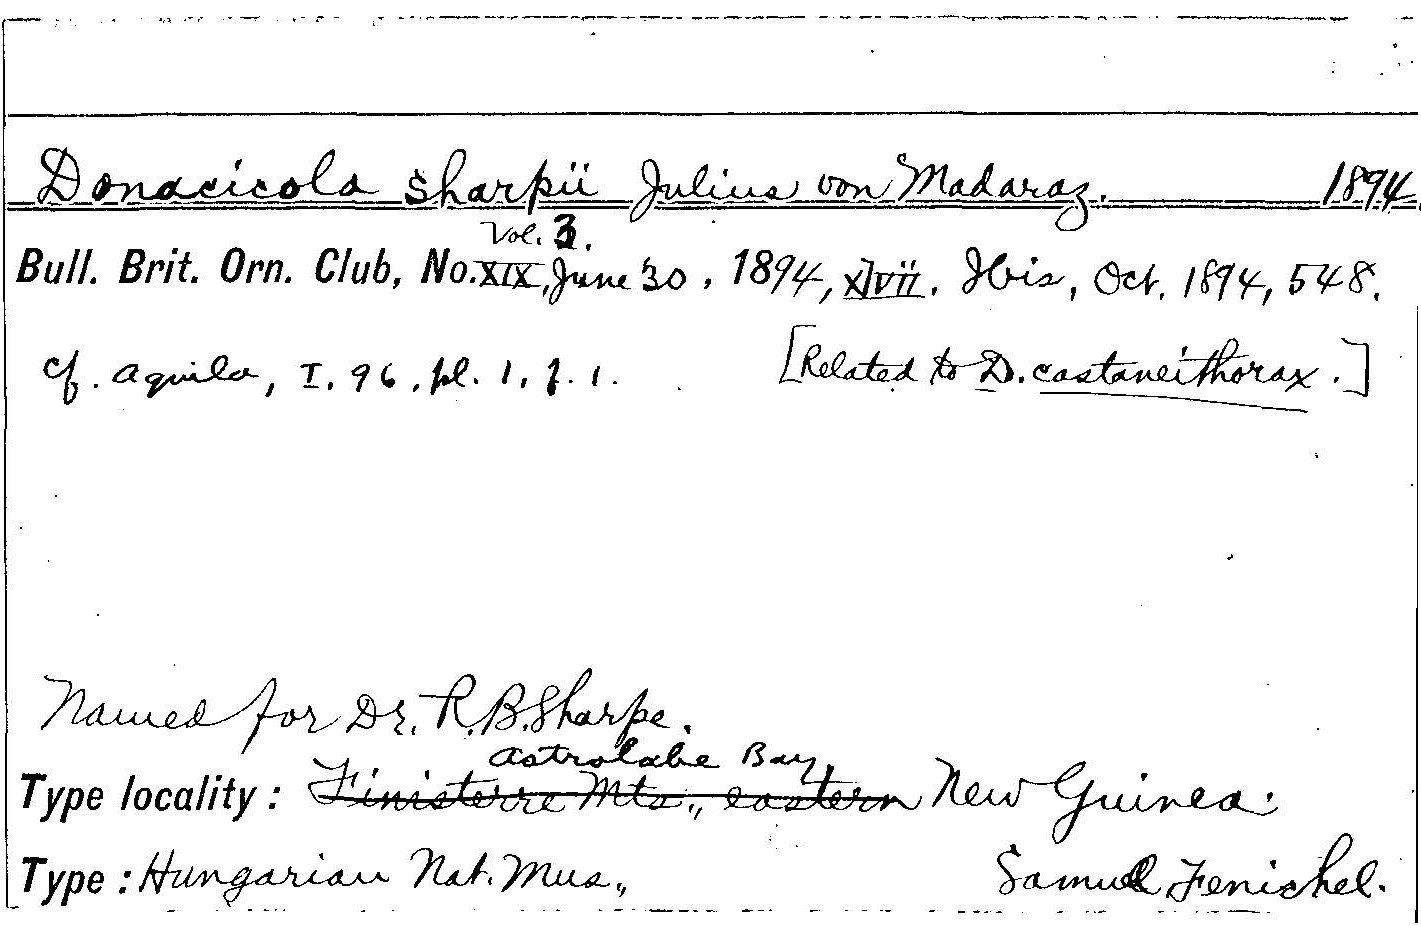 Donacicola sharpii Julius von Madaraz. 1894
Vol. 3.
Bull. Brit. Orn. Club, No. XIX, June 30, 1894, xlvii. Ibis, Oct. 1894, 548.
cf. Aquila, I. 96, pl. 1, f. 1. [Related to D. castaneithorax.]
Named for Dr. R.B. Sharpe.
Astrolabe Bay,
Type locality: Finisterre Mts., eastern New Guinea.
Type: Hungarian Nat. Mus., Samuel Fenichel.